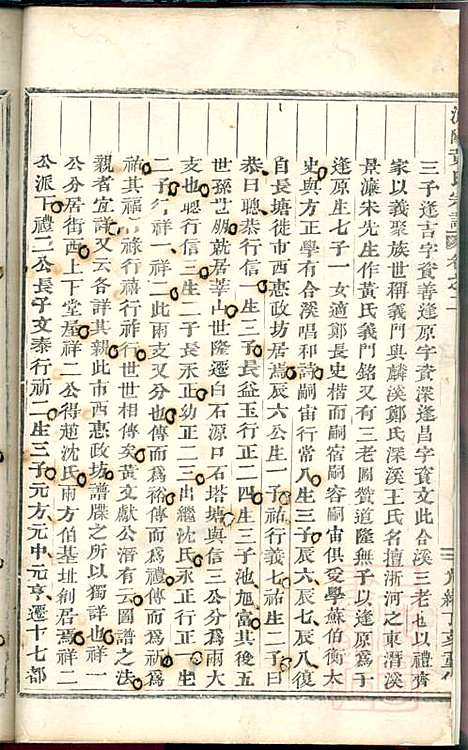 黃氏宗譜 卷之二
光緒丁亥重修
三子逢吉字資善逢原字資深逢昌字資文此合溪三老也以禮齊
家以義聚族世稱義門與麟溪鄭氏深溪王氏名擅浙河之東潛溪
景濂宋先生作黃氏義門銘又有三老圖贊道隆無子以逢原為
逢原生七子一女適鄭長史楷而嗣宿嗣容嗣宙俱受學蘇伯衡太
史與方正學有合溪唱和詩嗣宙行常八生三子辰六辰七辰八復
自長塘徙市西惠政坊居焉辰六公生一子祐行義七祐生二子曰
恭曰聰恭行信一生三子長益玉行正二四生三子池旭富其後五
世孫世賜就居莘山世隆遷白石源口石塔塘與信三公分為兩
支也聰行信三生二子長永正幼正二三出繼沈氏永正行正一生
二子行祥一祥二此兩支又分也傳而為裕傳而為禮傳而為祈為
祐其福行祿行禧行祚行世世相傳矣黃文獻公溍有云圖譜之法
親者宜詳又云各詳其親此市西惠政坊譜牒之所以獨詳也祥一
公分居街西上下堂屋祥二公得趙沈氏兩方伯基址創居焉祥二
公派下禮二公長子文泰行祈二生三子元方元中元亨遷十七都